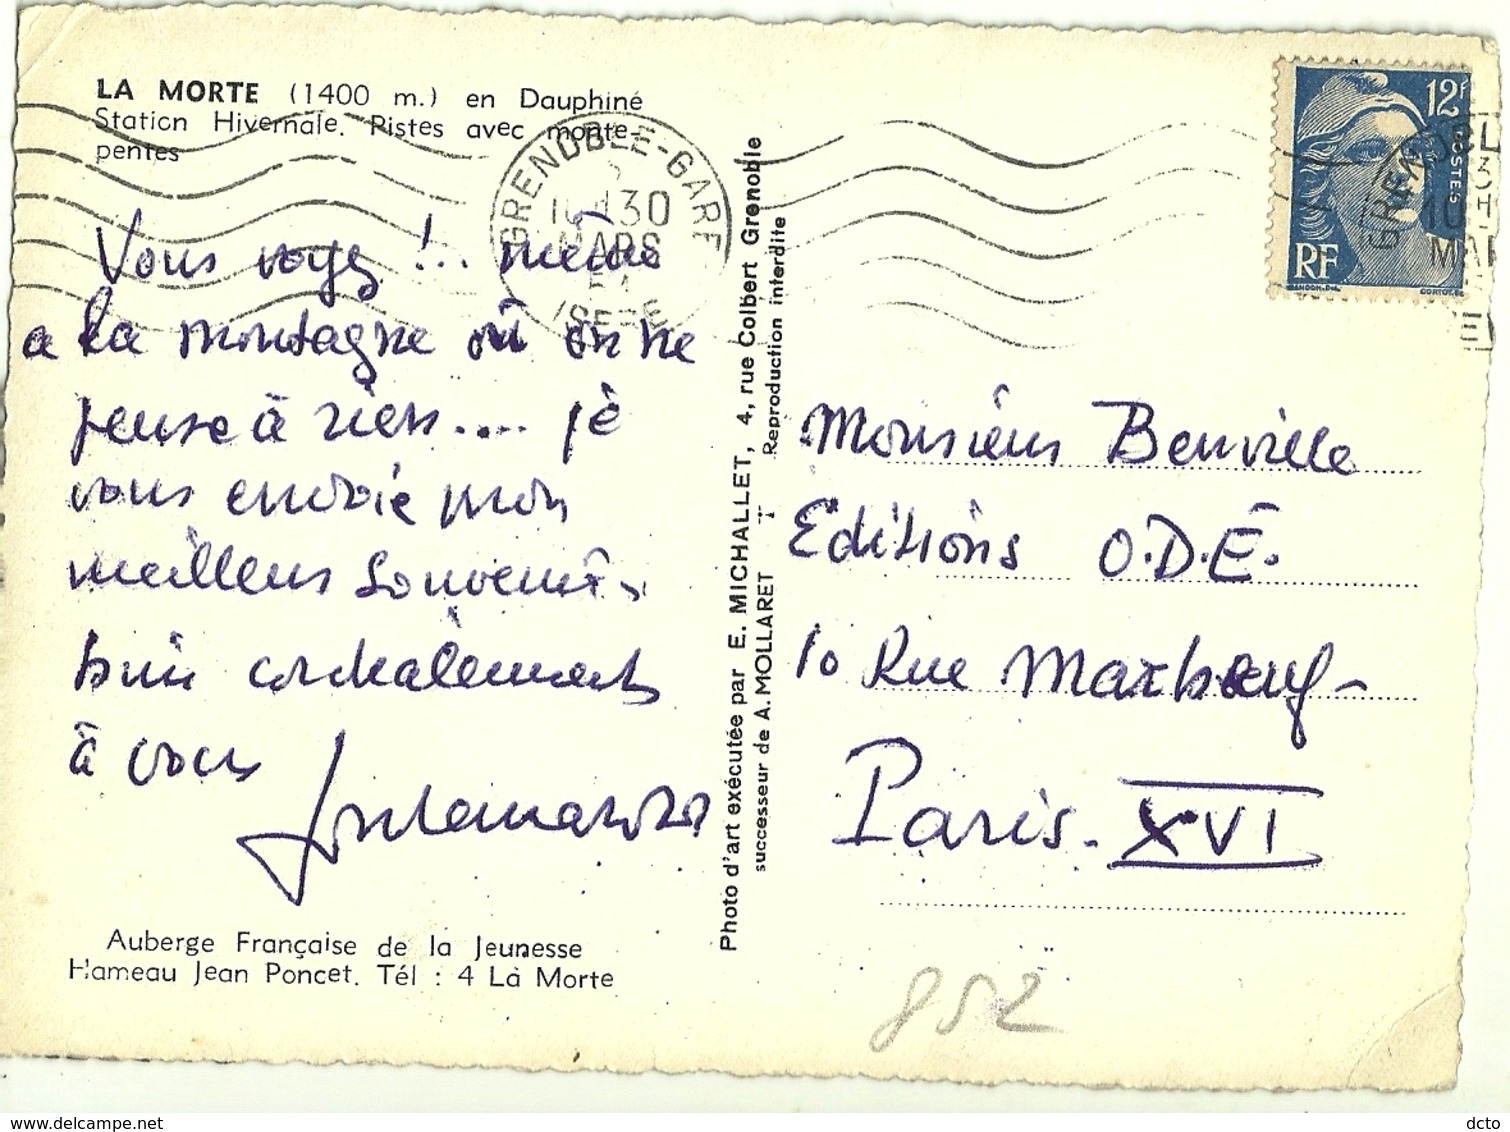 LA MORTE (1400 m.) en Dauphiné
Station Hivernale. Pistes avec monte-
pentes
GRENOBLE-GARE
30
MARS
ISERE
12F
POSTES
RF
10
Vous voyez !.. même
a la montagne où on ne
pense à rien.... je
vous envoie mon
meilleur souvenir.
bien cordialement
à vous
Auberge Française de la Jeunesse
Hameau Jean Poncet. Tél : 4 La Morte
Photo d'art exécutée par E. MICHALLET, 4, rue Colbert Grenoble
successeur de A. MOLLARET Reproduction interdite
Monsieur Benville
Editions O.D.E.
10 Rue Marbeuf-
Paris. XVI
852
dcto